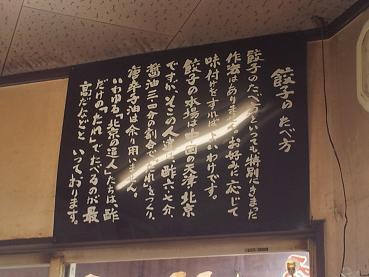 餃子のたべ方
餃子のたべ方といって特別へんまだ
作法はありません。お好みに応じて
味付けをすればいいわけです。
餃子の本場は中国の天津、北京
ですが、そこの人達は酢六〜七分、
醤油三〜四分の割合でたれをつくり、
唐辛子油は余り用いません。
いわゆる「北京の通人」たちは酢
だけの「たれ」でたべるのが最
高だなどといっております。